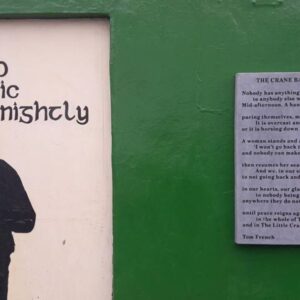 O
ic
nightly
THE CRANE BA
Nobody has anything
to anybody else
Mid-afternoon. A han
paring themselves, m
It is overcast an
or it is horsing down
A woman stands and a
I won't go back
and nobody can make
then resumes her sea
And we, in our
to not going back and
in our hearts, our gla
to nobody being
anywhere they do not
until peace reigns ag
in the whole of T
and in The Little Cra
Tom French